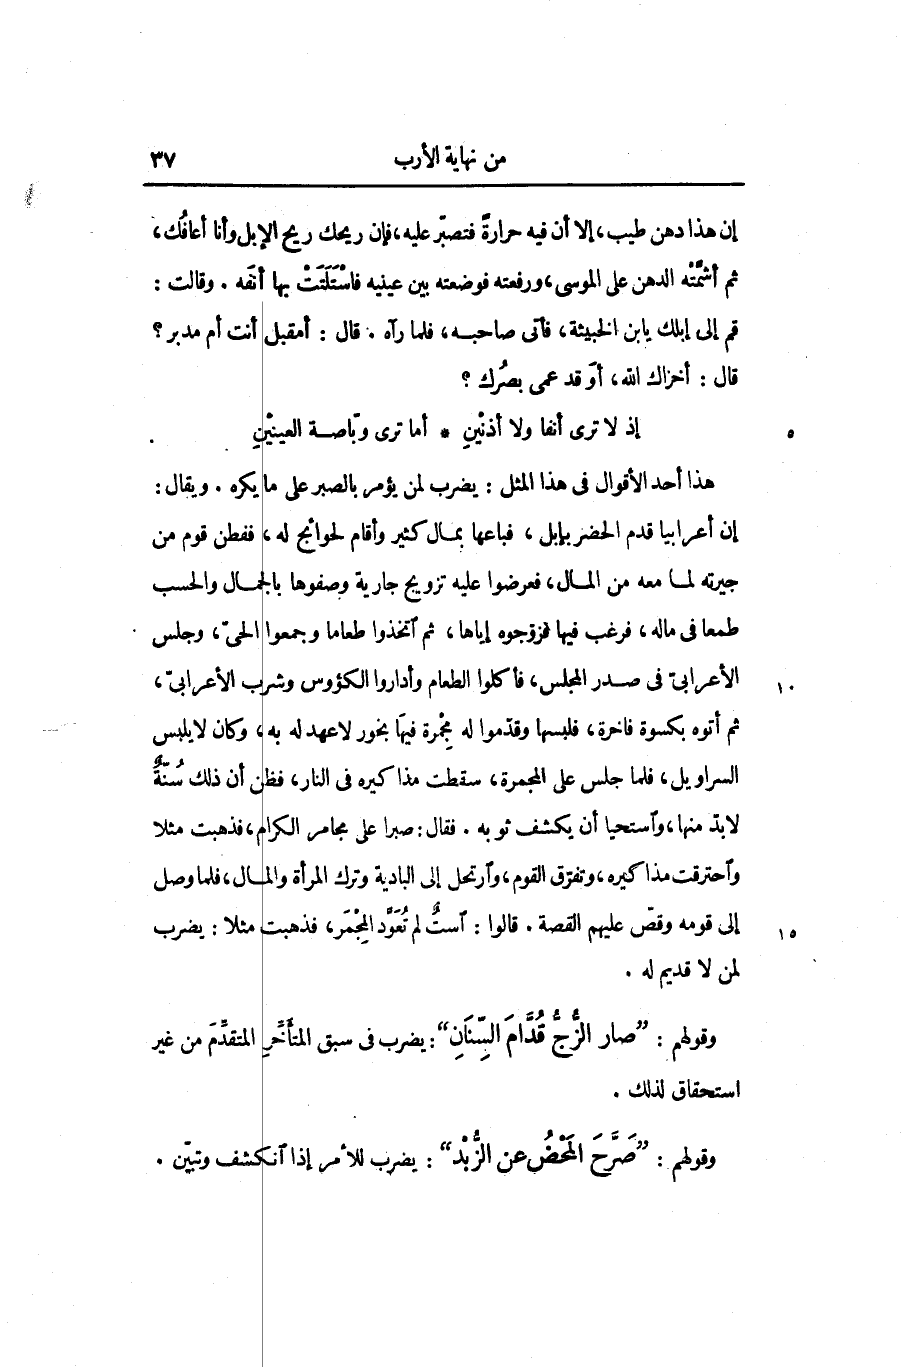 من نهاية الأرب ٣٧
إن هذا دهن طيب، إلا أن فيه حرارةً فتصبّر عليه، فإن ريحك ريح الإبل وأنا أعافُك،
ثم أشمَّتْه الدهن على الموسى، ورفعته فوضعته بين عينيه فاسْتَلَتَتْ بها أنفَه . وقالت :
قم إلى إبلك يابن الخبيثة، فأتى صاحبه، فلما رآه . قال : أمقبل أنت أم مدبر ؟
قال : أخزاك الله، أوَ قد عمى بصُرك ؟
إذ لا ترى أنفا ولا أذنْينِ * أما ترى وبّاصة العينيْنِ ٥
هذا أحد الأقوال فى هذا المثل : يضرب لمن يؤمر بالصبر على ما يكره . ويقال :
إن أعرابيا قدم الحضر بإبل ، فباعها بمال كثير وأقام لحوائج له ، ففطن قوم من
جيرته لما معه من المال، فعرضوا عليه تزويج جارية وصفوها بالجمال والحسب
طمعا فى ماله ، فرغب فيها فزوّجوه إياها ، ثم ٱتخذوا طعاما وجمعوا الحىّ ، وجلس
الأعرابىّ فى صدر المجلس، فأكلوا الطعام وأداروا الكؤوس وشرب الأعرابىّ ، ١٠
ثم أتوه بكسوة فاخرة، فلبسها وقدّموا له مِجْمرة فيهَا بخور لا عهد له به ، وكان لا يلبس
السراويل، فلما جلس على المجمرة، سقطت مذاكيره فى النار، فظن أن ذلك سُنّةٌ
لابدّ منها، وٱستحيا أن يكشف ثوبه . فقال : صبرا على مجامر الكرام ، فذهبت مثلا
وٱحترقت مذاكيره ، وتفرّق القوم ، وٱرتحل إلى البادية وترك المرأة والمال، فلما وصل
إلى قومه وقصّ عليهم القصة . قالوا : ٱستٌ لم تُعَوَّد المِجْمَر، فذهبت مثلا : يضرب ١٥
لمن لا قديم له .
وقولهم : ”صار الزُّجُّ قُدَّامَ السِّنَانِ“ : يضرب فى سبق المتأَخِّرِ المتقدِّمَ من غير
استحقاق لذلك .
وقولهم : ”صَرَّحَ المَحْضُ عن الزُّبْد“ : يضرب للأمر إذا ٱنكشف وتبيّن .